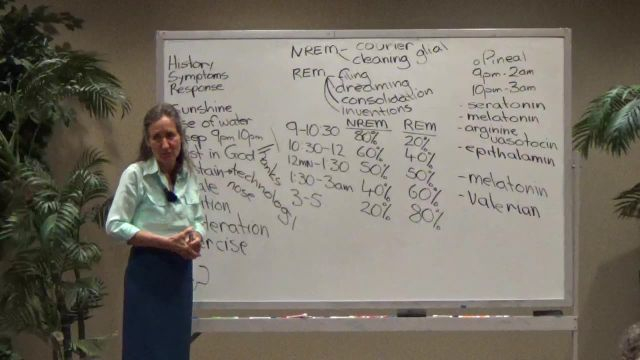 History
Symptoms
Response
Sunshine
se of water
eep 9pm 10pm
st in God
Thanks
stain + technology
ale nose
ition
eration
ercise
NREM - courier glial
cleaning
REM - filing
dreaming
consolidation
inventions
NREM REM
9-10:30 80% 20%
10:30-12 60% 40%
12mn-1:30 50% 50%
1:30-3am 40% 60%
3-5 20% 80%
Pineal
9pm-2am
10pm-3am
- seratonin
- melatonin
- arginine
vasotocin
- epithalamin
- melatonin
- Valerian